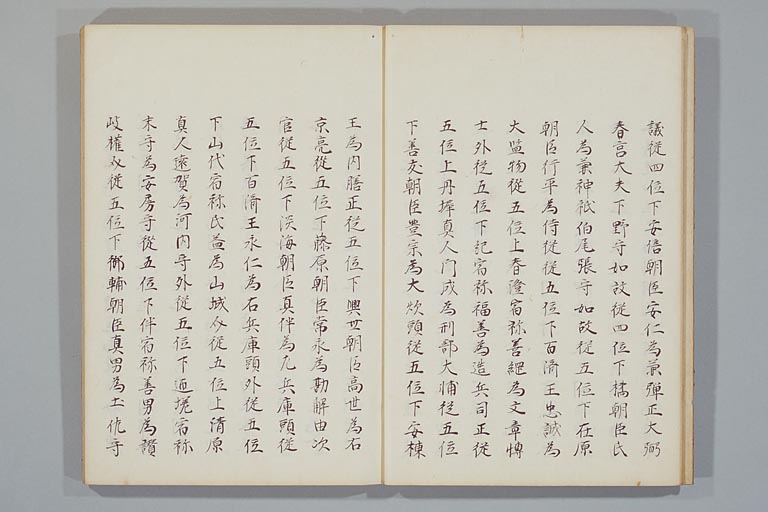 議從四位下安倍朝臣安仁為兼弾正大弼
春宮大夫下野守如故從四位下橘朝臣氏
人為兼神祇伯尾張守如故從五位下在原
朝臣行平為侍從從五位下百濟王忠誠為
大監物從五位上春澄宿祢善繩為文章博
士外從五位下記宿祢福善為造兵司正從
五位上丹墀真人門成為刑部大輔從五位
下善友朝臣豊宗為大炊頭從五位下安棟
王為内膳正從五位下興世朝臣高世為右
京亮從五位下藤原朝臣常永為勘解由次
官從五位下淡海朝臣真伴為左兵庫頭從
五位下百濟王永仁為右兵庫頭外從五位
下山代宿祢氏益為山城介從五位上清原
真人遠賀為河内守外從五位下道塊宿祢
末守為安房守從五位下伴宿祢善男為讃
岐權介從五位下御輔朝臣真男為土佐守